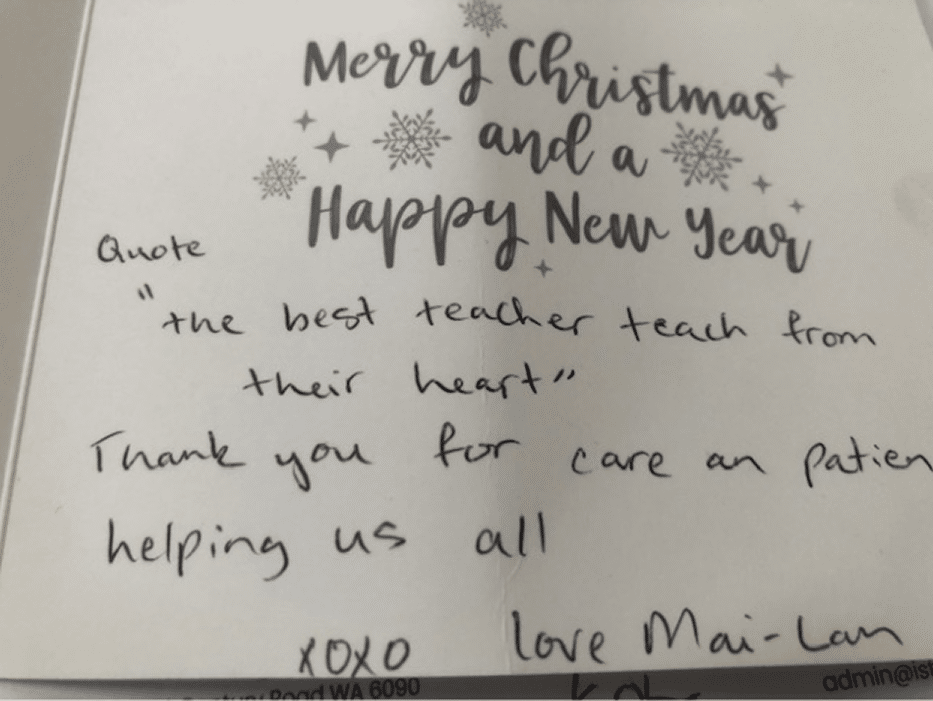 Merry Christmas
and a
Happy New Year
Quote
"the best teacher teach from
their heart"
Thank you for care an patien
helping us all
XOXO love Mai-Lan
Road WA 6090
admin@ist